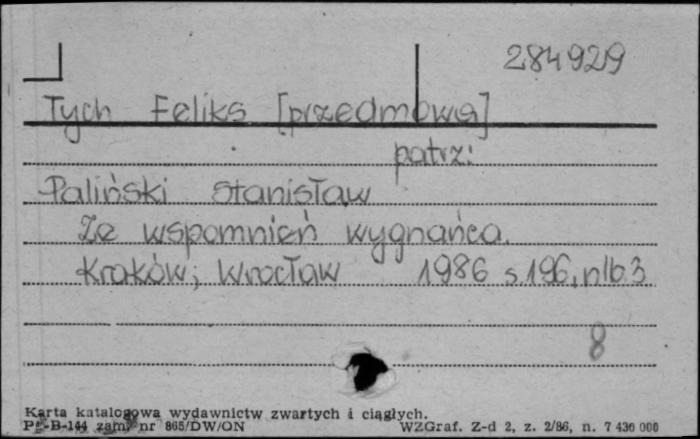 284929
Tych Feliks [przedmowa]
patrz:
Paliński Stanisław
Ze wspomnień wygnańca.
Kraków; Wrocław 1986 s.196, nlb 3
8
Karta katalogowa wydawnictw zwartych i ciągłych.
Pu-B-144 zam. nr 865/DW/ON WZGraf. Z-d 2, z. 2/86, n. 7 430 000